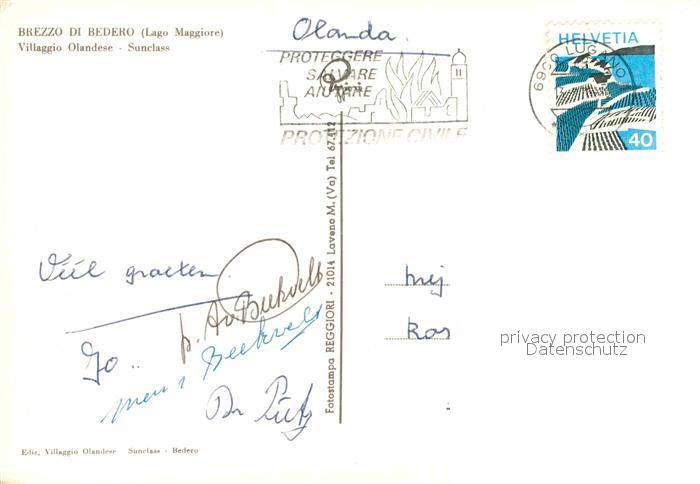 BREZZO DI BEDERO (Lago Maggiore)
Villaggio Olandese - Sunclass
Olanda.
PROTEGGERE
SALVARE
AIUTARE
PROTEZIONE CIVILE
6900 LUGANO
HELVETIA
40
Fotostampa REGGIORI - 21014 Laveno M. (Va) Tel 67.412
Veel groeten
Jo..
mej
kas
privacy protection
Datenschutz
Ediz. Villaggio Olandese Sunclass - Bedero